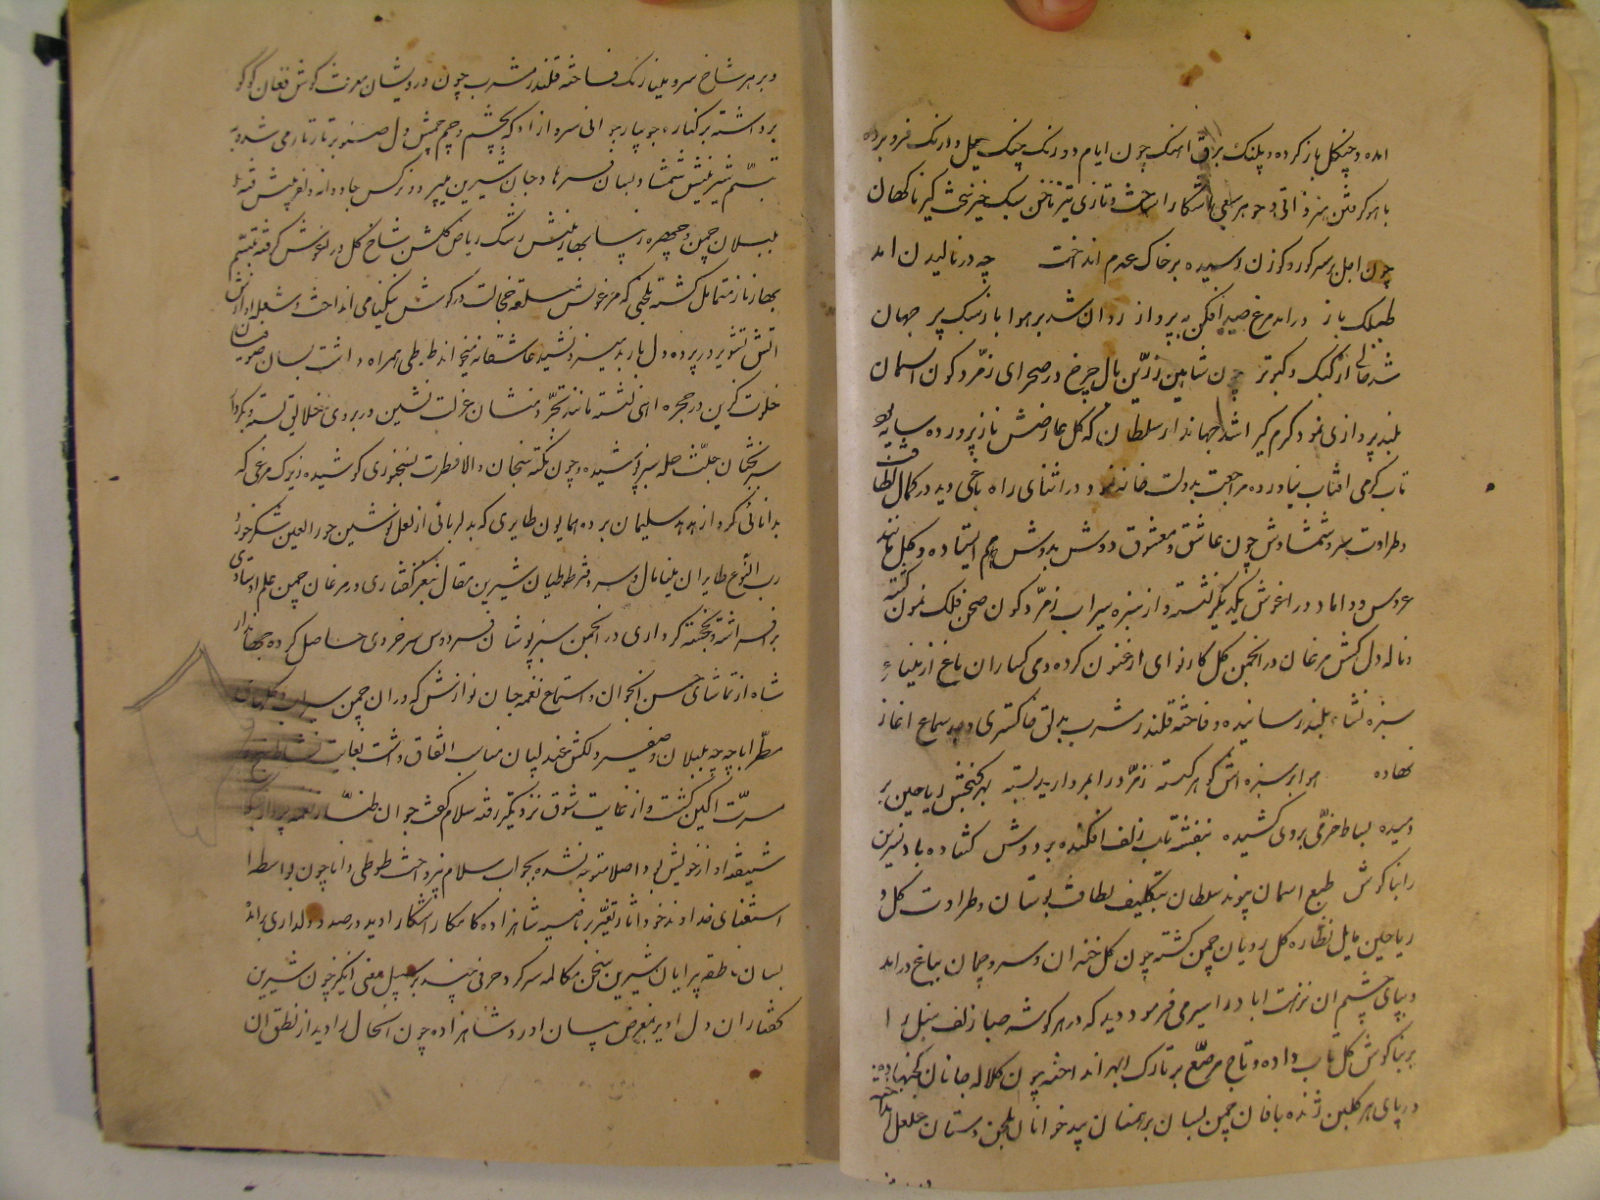 امده و چنگل باز کرده و پلنگ برق اهنگ چون ایام دو رنگ چنگ فرو برده
با هو کرفتن هنر ذاتی و جوهر تازی تیز ناخن سبک خیز ناکهان
چون اجل بر سر کور و کوزن رسیده بر خاک عدم انداخت چه در نالیدن امد
طبلک باز درامد مرغ صید افکن به پرواز روان شد بر هوا باز سبک پر جهان
شد خالی از کبک و کبوتر چون شاهین زرّین بال چرخ در صحرای زمرّد کون اسمان
بلند پروازی نمود کرم کیر اشد جهاندار سلطان که کل عارضش ناز پرورده سایه بود
تاب کرمی افتاب نیاورده مراجعت بدولت خانه نمود در اثنای راه باغی دید در کمال لطافت
و طراوت سرو شمشادش چون عاشق و معشوق دوش بدوش هم استاده و کل مانند
عروس و داماد در اغوش یکدیگر نشسته و از سبزه سیراب زمرّد کون صحن فلک نمون کشته
و ناله دل کش مرغان در انجمن کل کار نوای ارغنون کرده و می کساران باغ از مینای
سبزه نشاء بلند رسانیده و فاخته قلندر مشرب بدلق خاکستری در سماع اغاز
نهاده هوا بر سبزه اش کوهر کسسته زمرّد را بمروارید بسته بهر کنجش ریاحین بر
دمیده بساط خرّمی بر روی کشیده بنفشه تاب زلف افکنده بر دوش کشاده باد نسرین
را بنا کوش طبع اسمان پیوند سلطان بتکلیف لطافت بوستان و طراوت کل و
ریاحین مایل نظّاره کل رویان چمن کشته چون کل خندان و سرو چمان بباغ درامد
و بپای چشم ان نزهت اباد را سیر می فرمود دید که در هر کوشه صبا زلف سنبل را
بر بناکوش کل تاب داده و تاج مرصّع بر تارک انداخته چون کلاله جانان
در پای هر کلبن ژنده بافان چمن بسان برهمنان بید خوانان بلحن دستان غلغل
و بر هر شاخ سرو مینا رنگ فاخته قلندر مشرب چون درویشان معرفت کوش فغان کوکو
برداشته بر کنار جویبار جوانی سرو ازاد که بچشم و چم خمش دل صنوبر تار تار می شد و به
تبسّم شیرینش شمشاد بسان سرها و جان شیرین میپرد و نرکس جاودانه دلفریبش فتنه
بلبلان چمن و چهره زیبا بهارینش رشک ریاض کلشن شاخ کل در اغوش کرفته بتبسّم
بهار ناز متمایل کشته بلحنی که مرغولش حلقه خجالت در کوش نکیسا می انداخت و شعله اوازش
اتش تشویر در پرده دل باربد میزد نشید عاشقانه میخواند طوطی همراه داشت بسان صوفیان
خلوت کزین در حجره اهنی نشسته مانند تجرّد منشان عزلت نشین در بروی خلایق بسته و بکردار
سبز بختان جنّت حله سبز پوشیده و چون نکته سنجان والا فطرت بسخنوری کوشیده زیرک مرغی که
بدانائی کرو از هدهد سلیمان برده همایون طایری که بدلربائی از لعل نوشین حور العین شکر خورد
رب النوع طایران مینا بال و سر دفتر طوطیان شیرین مقال نغز کفتاری در مرغان چمن علم استادی
برافراشته و بجسته کرداری در انجمن سبز پوشان فردوس سرخروی حاصل کرده جهاندار
شاه از تماشای حسن ان جوان و استماع نغمه جان نوازش که در ان چمن سیراب و کل
مطّرا با چهچه بلبلان و صفیر دلکش عندلیبان مناسب اتفاق داشت بغایت
مسرّت اکین کشت و از غایت شوق نزدیکتر رفته سلام کفت جوان طنّاز نغمه پرداز که
شیفته اواز خویش بود اصلا متوجه نشده بجواب سلام نپرداخت طوطی دانا چون بواسطه
استغنای خداوند خود اثار تغیّر بر ناصیه شاهزاده کامکار اشکارا دید در صدد دلداری برامده
بسان ناطقه پیرایان شیرین سخن مکالمه سر کرد و حرفی چند بر سبیل معنی انکیز چون شیرین
کفتاران دل اویز بمعرض بیان اورد شاهزاده چون انحال را دید از نطق ان